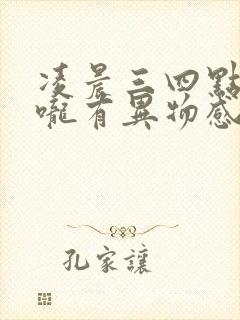 凌晨三四點
嚨有異物感
孔家讓